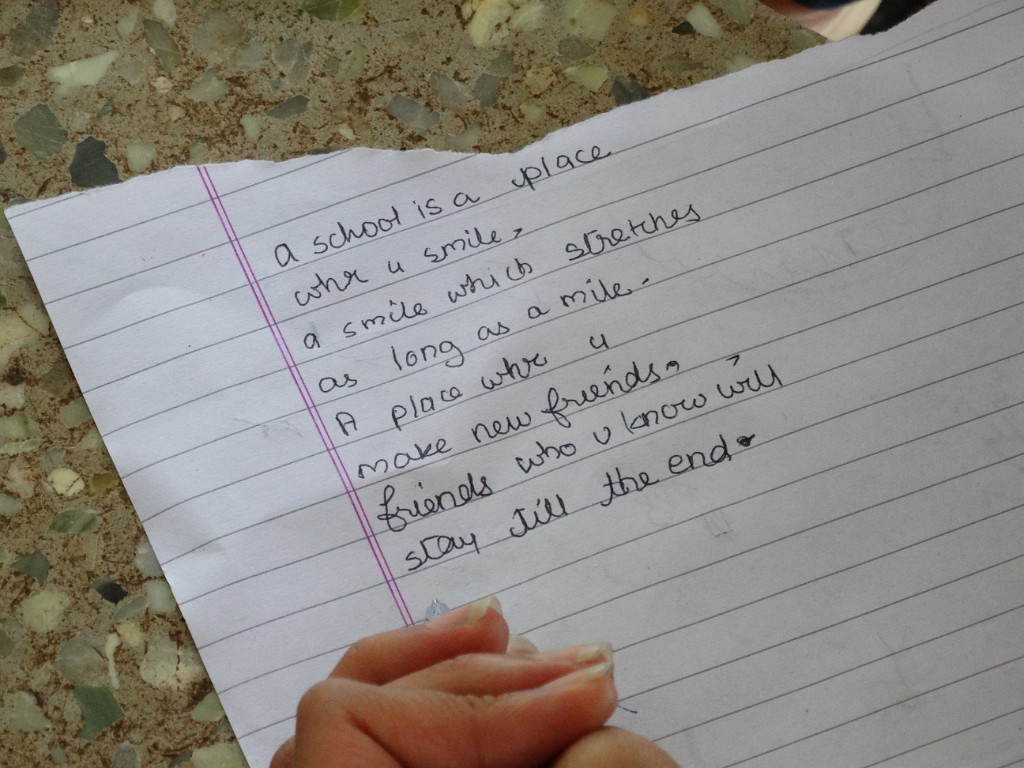 a school is a place
whr u smile,
a smile which stretches
as long as a mile.
A place whr u
make new friends,
friends who u know will
stay till the end.